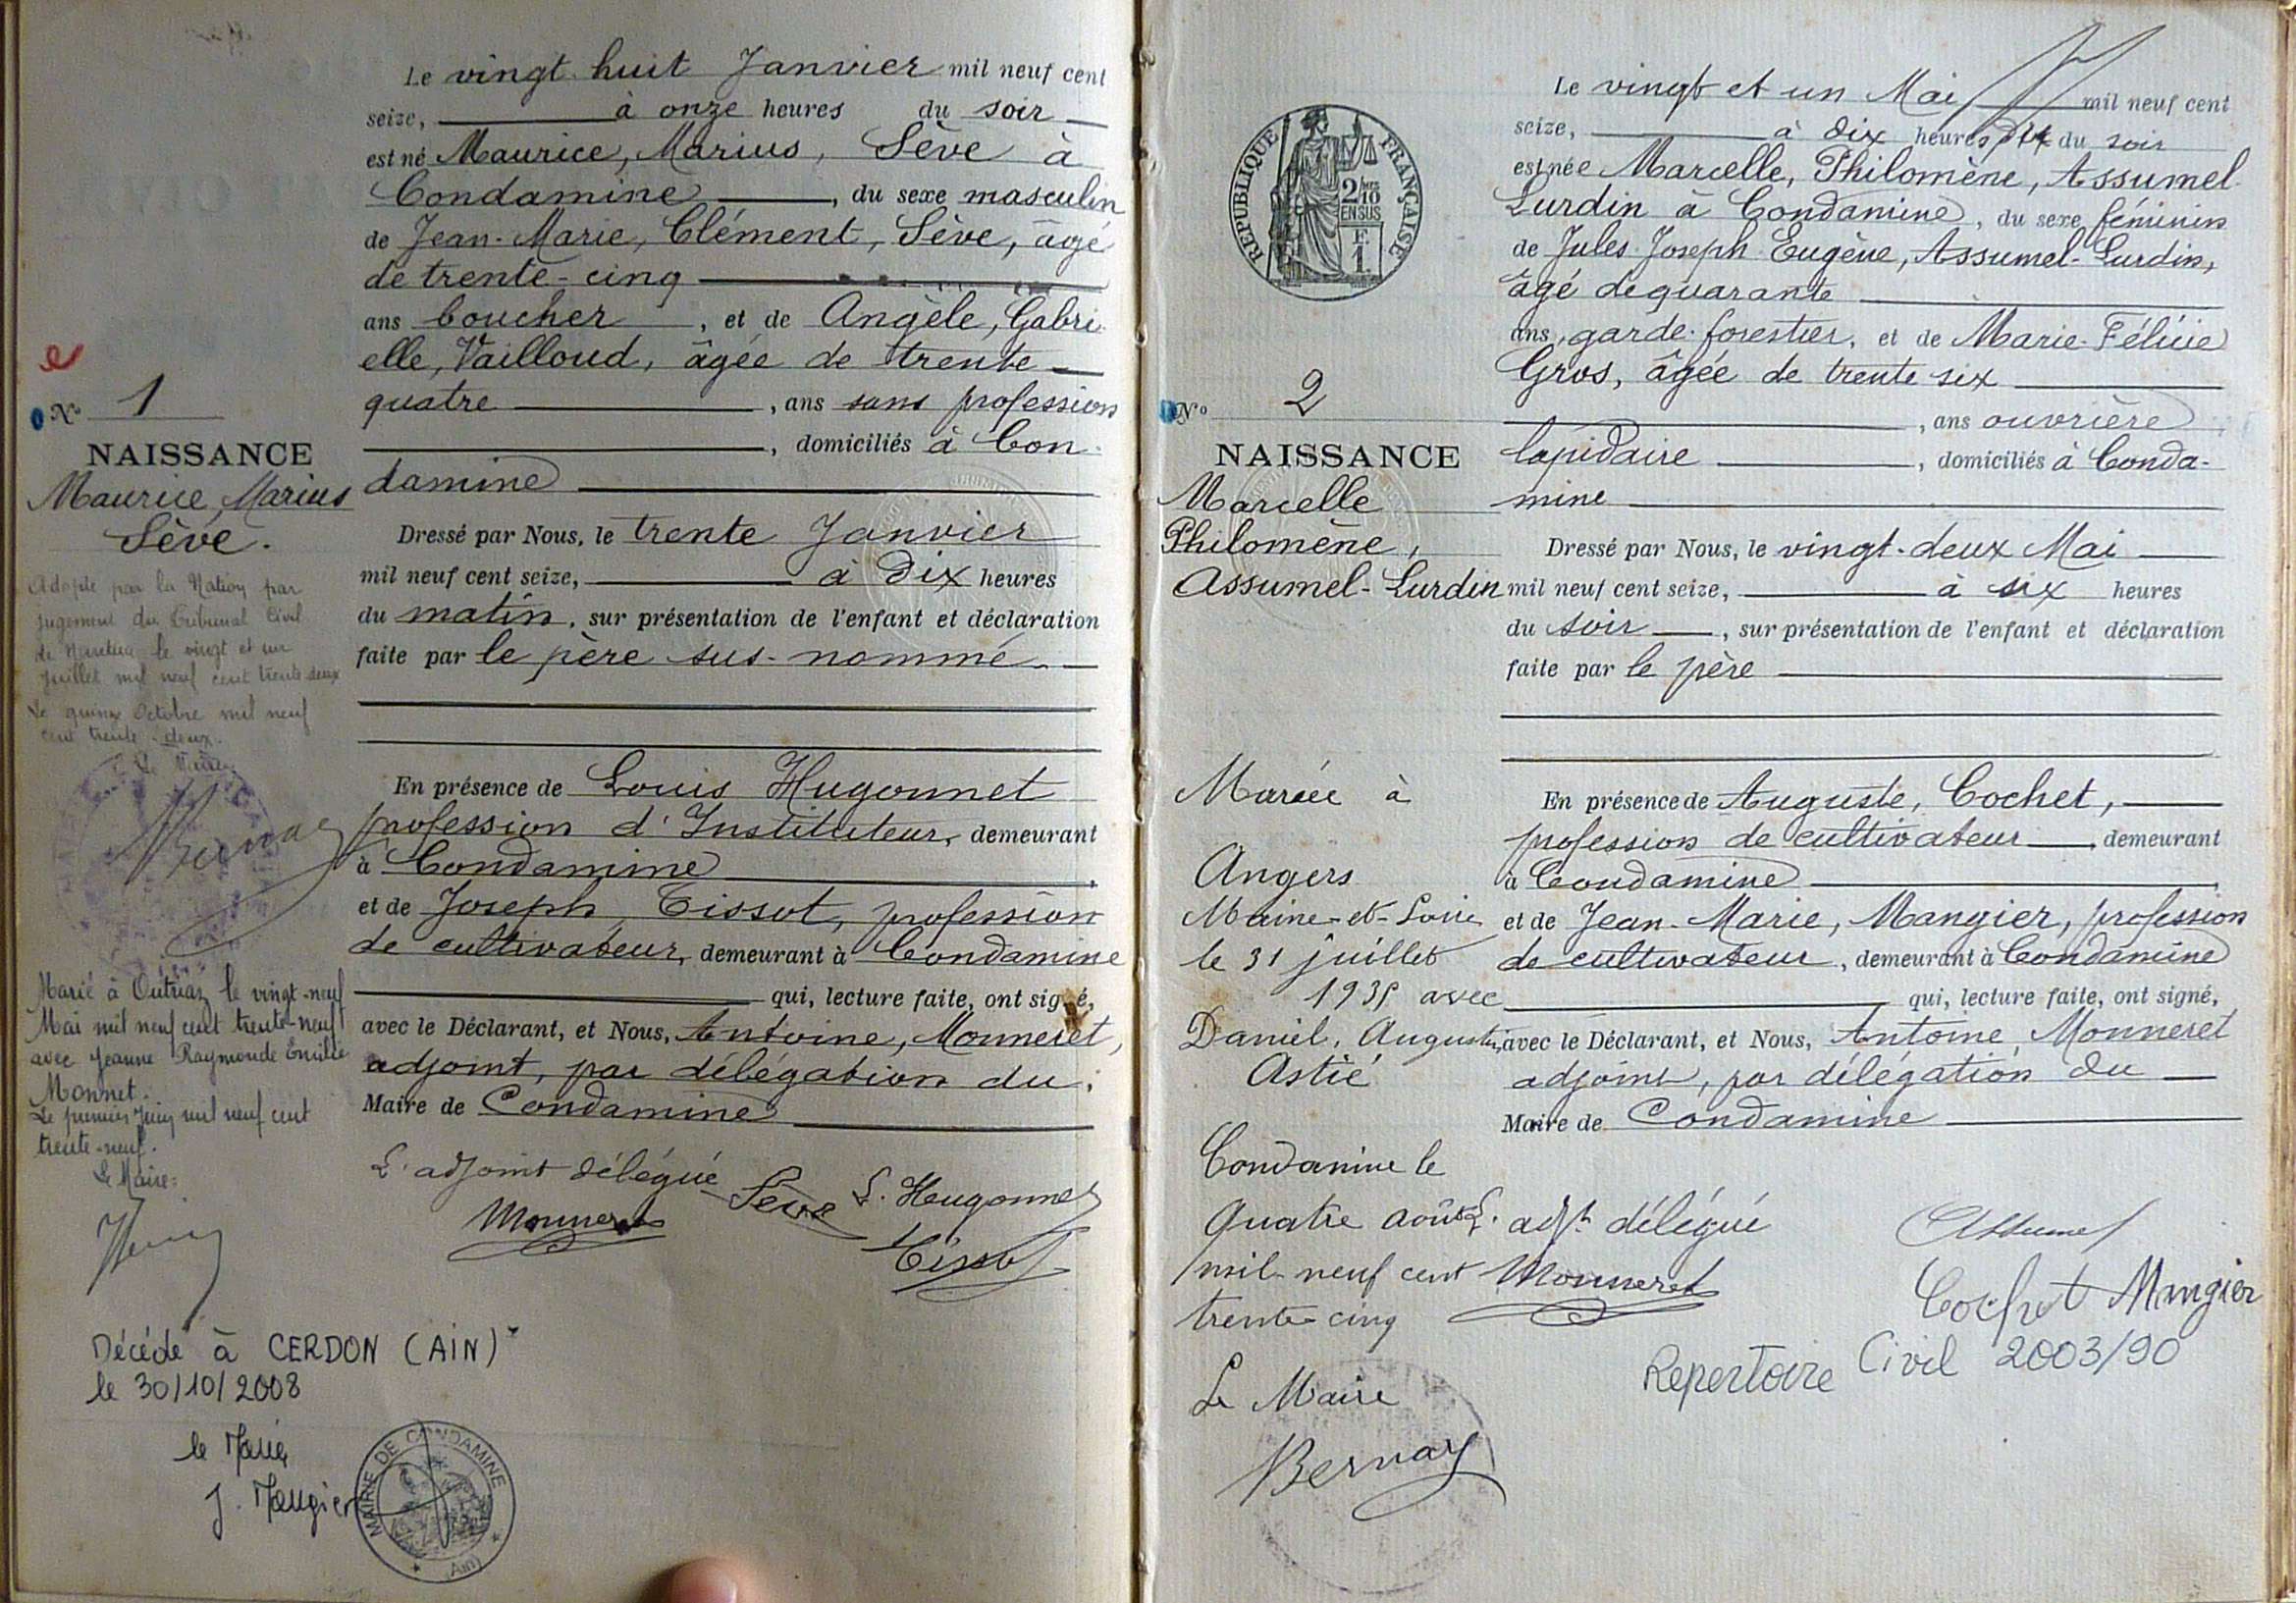 Le vingt-huit Janvier mil neuf cent
seize, à onze heures du soir
est né Maurice, Marius, Sève à
Condamine, du sexe masculin
de Jean-Marie, Clément, Sève, âgé
de trente-cinq
ans boucher, et de Angèle, Gabri-
elle, Vailloud, âgée de trente
quatre, ans sans profession
, domiciliés à Con-
damine
Dressé par Nous, le trente Janvier
mil neuf cent seize, à dix heures
du matin, sur présentation de l'enfant et déclaration
faite par le père sus-nommé
En présence de Louis Hugonnet
profession d'Instituteur, demeurant
à Condamine
et de Joseph, Tissot, profession
de cultivateur, demeurant à Condamine
qui, lecture faite, ont signé,
avec le Déclarant, et Nous, Antoine, Monneret,
adjoint, par délégation du
Maire de Condamine
L'adjoint délégué
Monneret
Sève
L. Hugonnet
Tissot
e
No 1
NAISSANCE
Maurice, Marius
Sève.
Adopté par la Nation par
jugement du Tribunal Civil
de Nantua le vingt et un
Juillet mil neuf cent trente-deux
Le quinze Octobre mil neuf
cent trente-deux.
Le Maire
Marié à Outriaz le vingt-neuf
Mai mil neuf cent trente-neuf
avec Jeanne Raymonde Emilie
Monnet.
Le premier Juin mil neuf cent
trente-neuf.
Le Maire:
Décédé à CERDON (AIN)
le 30/10/2008
le Maire
J. Mangier
MAIRIE DE CONDAMINE
* (Ain) *
Le vingt et un Mai mil neuf cent
seize, à dix heures du soir
est née Marcelle, Philomène, Assumel-
Lurdin à Condamine, du sexe féminin
de Jules Joseph Eugène, Assumel-Lurdin,
âgé de quarante
ans, garde-forestier, et de Marie-Félicie
Gros, âgée de trente six
, ans ouvrière
lapidaire, domiciliés à Conda-
mine
Dressé par Nous, le vingt-deux Mai
mil neuf cent seize, à six heures
du soir, sur présentation de l'enfant et déclaration
faite par le père
En présence de Auguste, Cochet,
profession de cultivateur, demeurant
à Condamine
et de Jean-Marie, Mangier, profession
de cultivateur, demeurant à Condamine
qui, lecture faite, ont signé,
avec le Déclarant, et Nous, Antoine, Monneret
adjoint, par délégation du
Maire de Condamine
L. adjt délégué
Monneret
Assumel
Cochet Mangier
Repertoire Civil 2003/90
RÉPUBLIQUE FRANÇAISE
2/10
EN SUS
F.
1.
No 2
NAISSANCE
Marcelle
Philomène,
Assumel-Lurdin
Mariée à
Angers
Maine-et-Loire
le 31 juillet
1935 avec
Daniel, Augustin,
Astié
Condamine le
Quatre août
mil neuf cent
trente-cinq
Le Maire
Bernay